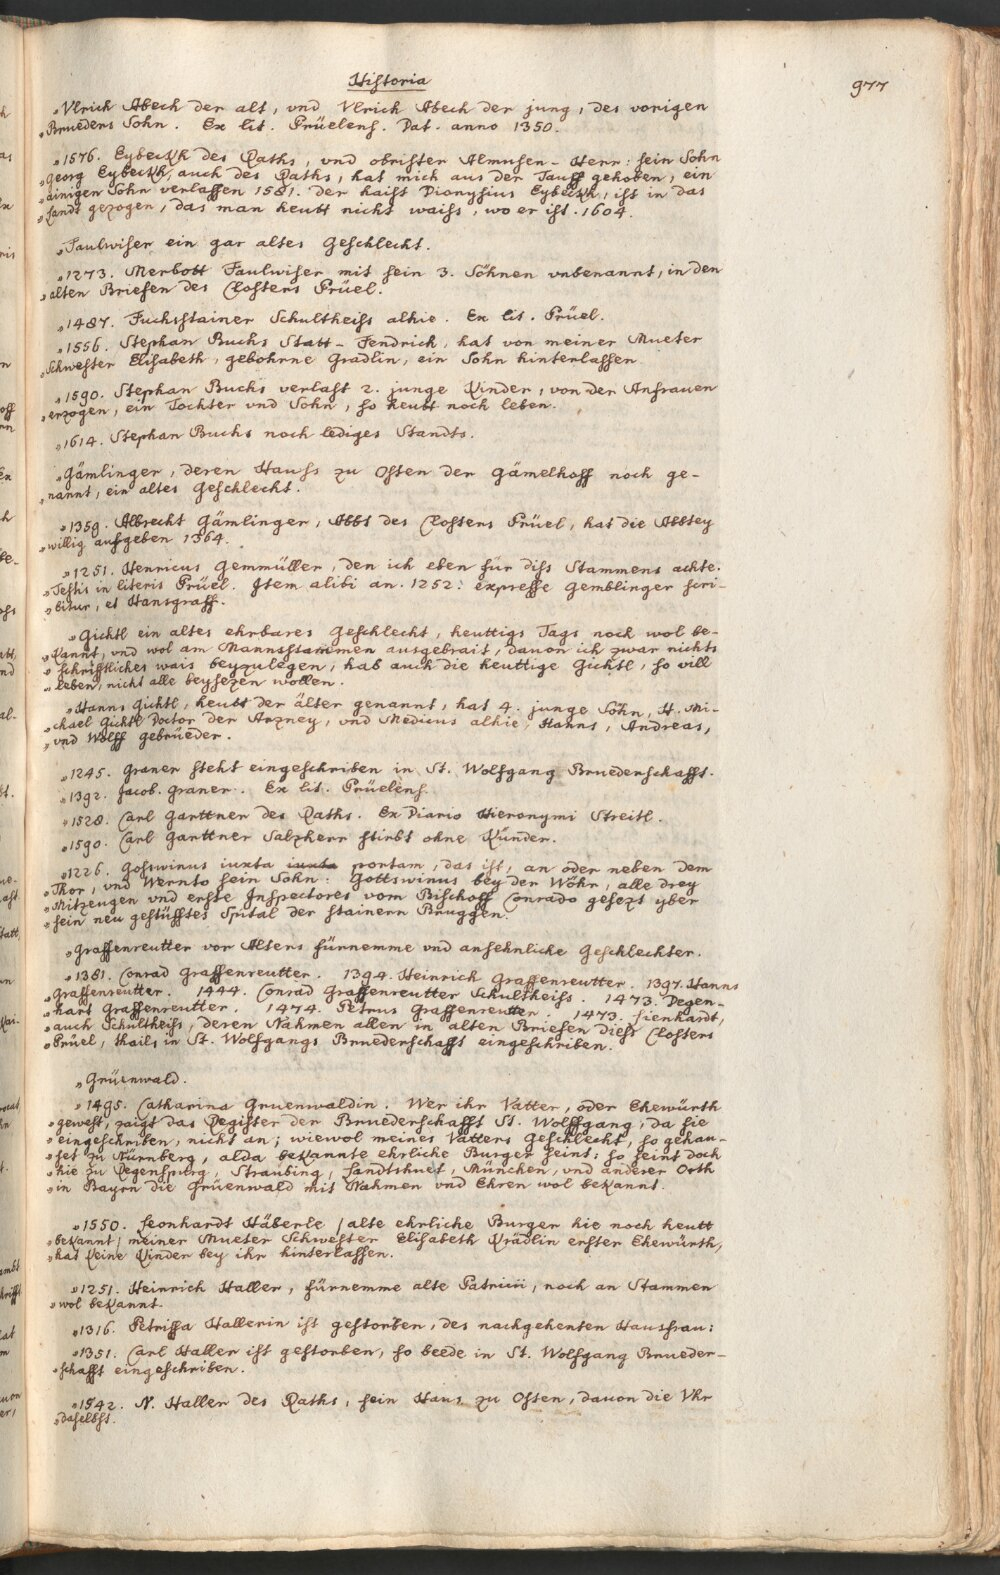 Historia
977
„Vlrich Abech der alt, vnd Vlrich Abech der jung, des vorigen
„Brueders Sohn. Ex lit. Prüelens. Dat. anno 1350.
„1576. Eybeckh des Raths, vnd obrister Almusen-Herr: sein Sohn
„Georg Eybeckh, auch des Raths, hat mich aus der Tauff gehoben, ein
„ainigen Sohn verlassen 1581. der haist Dionysius Eybeckh, ist in das
„Landt gezogen, das man heutt nicht waiss, wo er ist. 1604.
„Faulwiser ein gar altes Geschlecht.
„1273. Merbott Faulwiser mit sein 3. Söhnen unbenannt, in den
„alten Briefen des Closters Prüel.
„1487. Fuchsstainer Schultheiss alhie. Ex lit. Prüel.
„1556. Stephan Buchs Statt-Fendrich, hat von meiner Mueter
„Schwester Elisabeth, gebohrne Gradlin, ein Sohn hinterlassen
„1590. Stephan Buchs verlast 2. junge Kinder, von der Anfrauen
„erzogen, ein Tochter vnd Sohn, so heutt noch leben.
„1614. Stephan Buchs noch lediges Standts.
„Gämlinger, deren Hauss zu Osten der Gämelhoff noch ge-
„nannt, ein altes Geschlecht.
„1359. Albrecht Gämlinger, Abbt des Closters Prüel, hat die Abbtey
„willig aufgeben 1364.
„1251. Henricus Gemmüller, den ich eben für diss Stammens achte.
„Testis in literis Prüel. Item alibi an. 1252: expresse Gemblinger scri-
„bitur, et Hansgraff.
„Gichtl ein altes ehrbares Geschlecht, heuttigs Tags noch wol be-
„kannt, vnd wol am Mannsstammen ausgebrait, dauon ich zwar nichts
„schrifftliches wais beyzulegen, hab auch die heuttige Gichtl, so vill
„leben, nicht alle beysezen wollen.
„Hanns Gichtl, heutt der älter genannt, hat 4. junge Söhn, H. Mi-
„chael Gichtl Doctor der Arzney, vnd Medicus alhie, Hanns, Andreas,
„vnd Wolff gebrüeder.
„1245. Graner steht eingeschriben in St. Wolfgang Bruederschafft.
„1392. Jacob. Graner. Ex lit. Prüelens.
„1528. Carl Garttner des Raths. Ex Diario Hieronymi Streitl.
„1590. Carl Garttner Salzherr stirbt ohne Künder.
„1226. Goswinus iuxta iuxta portam, das ist, an oder neben dem
„Thor, vnd Wernto sein Sohn: Gottswinus bey der Wöhr, alle drey
„Mitzeugen vnd erste Inspectores vom Bischoff Conrado gesezt yber
„sein neu gestüfftes Spital der stainern Bruggen.
„Graffenreutter vor Alters fürnemme vnd ansehnliche Geschlechter.
„1381. Conrad Graffenreutter. 1394. Heinrich Graffenreutter. 1397. Hanns
„Graffenreutter. 1444. Conrad Graffenreutter Schultheiss. 1473. Degen-
„hart Graffenreutter. 1474. Petrus Graffenreutter. 1473. Lienhardt,
„auch Schultheiss, deren Nahmen allen in alten Briefen diess Closters
„Prüel, thails in St. Wolfgangs Bruederschafft eingeschriben.
„Grüenwald.
„1495. Catharina Gruenwaldin. Wer ihr Vatter, oder Ehewürth
„gewest, zaigt das Register der Bruederschafft St. Wolffgang, da sie
„eingeschriben, nicht an; wiewol meines Vatters Geschlecht, so gehau-
„set zu Nürnberg, alda bekannte ehrliche Burger seint: so seint doch
„hie zu Regenspurg, Straubing, Landtshuet, München, vnd anderer Orth
„in Bayrn die Grüenwald mit Nahmen vnd Ehren wol bekannt.
„1550. Leonhardt Häberle / alte ehrliche Burger hie noch heutt
„bekannt / meiner Mueter Schwester Elisabeth Krädlin erster Ehewürth,
„hat keine Kinder bey ihr hinterlassen.
„1251. Heinrich Haller, fürnemme alte Patricii, noch an Stammen
„wol bekannt.
„1316. Petrissa Hallerin ist gestorben, des nachgehenten Hausfrau:
„1351. Carl Haller ist gestorben, so beede in St. Wolfgang Brueder-
„schafft eingeschriben.
„1542. N. Haller des Raths, sein Haus zu Osten, dauon die Vhr
„daselbst.